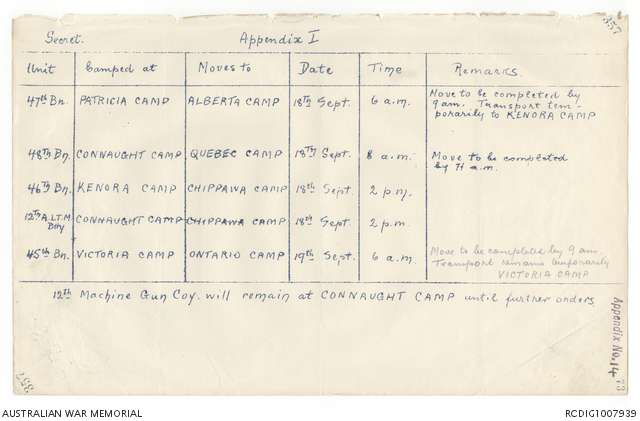 Secret. Appendix I 357
Unit Camped at Moves to Date Time Remarks.
47th Bn. PATRICIA CAMP ALBERTA CAMP 18TH Sept. 6 a.m. Move to be completed by
9 am. Transport tem-
porarily to KENORA CAMP
48TH Bn. CONNAUGHT CAMP QUEBEC CAMP 18TH Sept. 8 a.m. Move to be completed
by 11 a.m.
46TH Bn. KENORA CAMP CHIPPAWA CAMP 18th Sept. 2 p.m.
12TH A.L.T.M. CONNAUGHT CAMP CHIPPAWA CAMP 18th Sept. 2 p.m.
Bay
45th Bn. VICTORIA CAMP ONTARIO CAMP 19th Sept. 6 a.m. Move to be completed by 9 am.
Transport remains temporarily
VICTORIA CAMP
12TH Machine Gun Coy. will remain at CONNAUGHT CAMP until further orders
Appendix No. 14
73
357
AUSTRALIAN WAR MEMORIAL RCDIG1007939